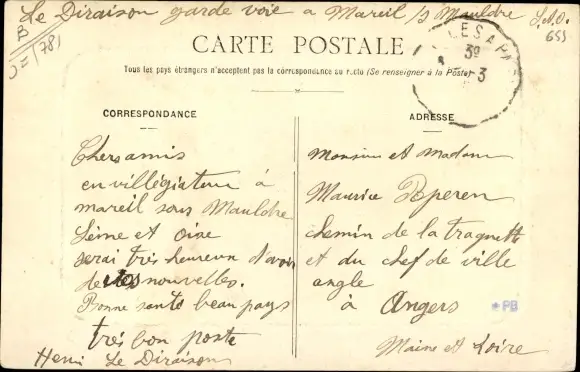 Le Diraison garde voie a Mareil /s Mauldre S.&.O.
B
5= (78)
659
CARTE POSTALE
LES A PA
39
-3
Tous les pays étrangers n'acceptent pas la correspondance au recto (Se renseigner à la Poste)
CORRESPONDANCE
Chers amis
en villégiateur à
mareil sous Mauldre
Seine et Oise
serai très heureux d'avoir
de vos nouvelles.
Bonne santé beau pays
très bon poste
Henri Le Diraison
ADRESSE
Monsieur et Madame
Maurice Peperen
chemin de la traquette
et du chef de ville
angle
à Angers
+PB
Maine et Loire